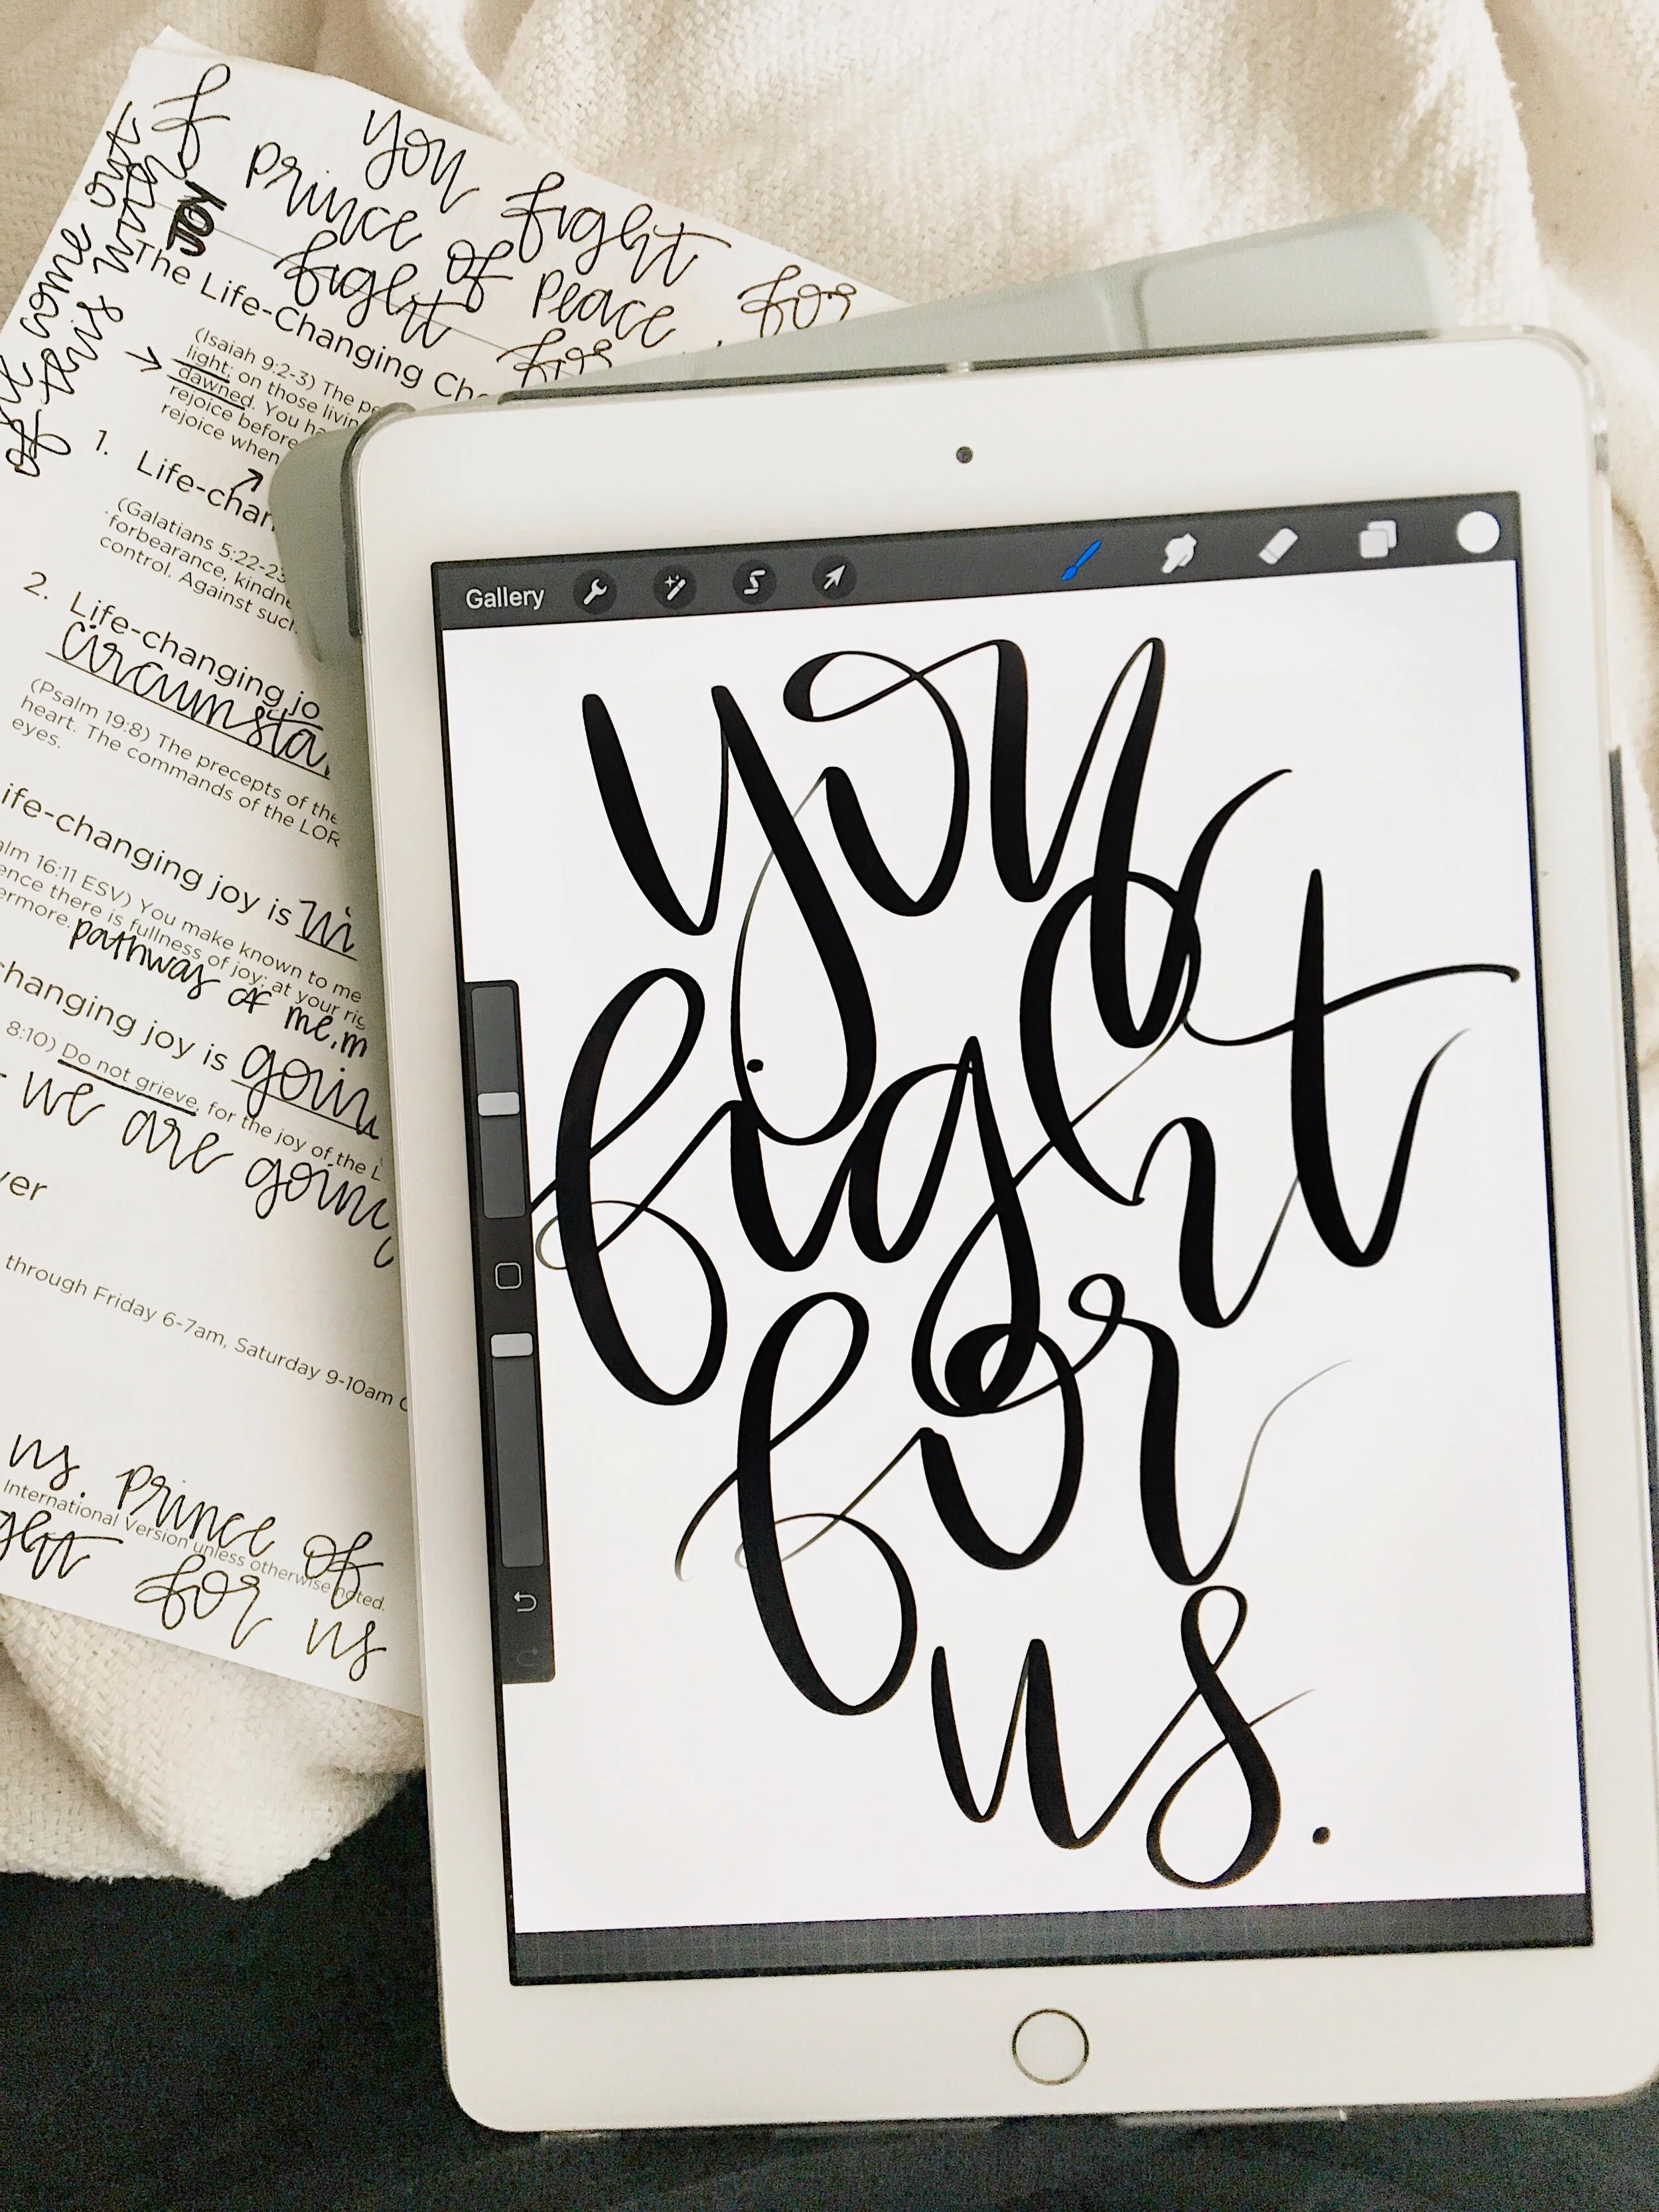 you fight for
prince of peace
fight for
you
The Life-Changing Ch
(Isaiah 9:2-3) The pe
light; on those livin
dawned. You ha
rejoice before
rejoice when
1. Life-chan
(Galatians 5:22-23
forbearance, kindne
control. Against such
2. Life-changing jo
circumsta
(Psalm 19:8) The precepts of the
heart. The commands of the LOR
eyes.
ife-changing joy is
alm 16:11 ESV) You make known to me
ence there is fullness of joy; at your rig
ermore.
pathway of me.m
changing joy is goin
8:10) Do not grieve, for the joy of the L
- we are going
ver
through Friday 6-7am, Saturday 9-10am
us. prince of
International Version unless otherwise noted.
ght for us
Gallery
you
fight
for
us.